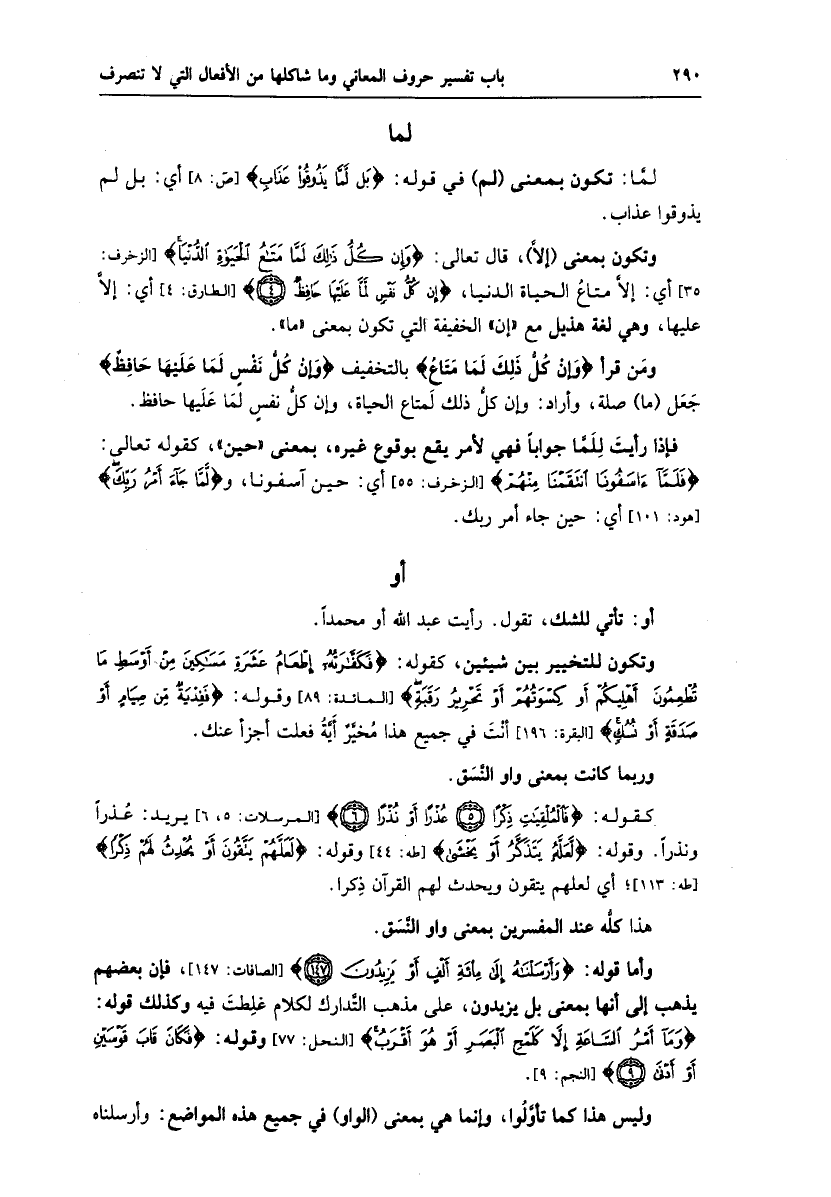 ٢٩٠ باب تفسير حروف المعاني وما شاكلها من الأفعال التي لا تنصرف
لما
لمَّا: تكون بمعنى (لم) في قوله: ﴿بَل لَّمَّا يَذُوقُوا۟ عَذَابِ﴾ [صّ: ٨] أي: بل لم
يذوقوا عذاب.
وتكون بمعنى (إلاَّ)، قال تعالى: ﴿وَإِن كُلُّ ذَٰلِكَ لَمَّا مَتَٰعُ ٱلْحَيَوٰةِ ٱلدُّنْيَا﴾ [الزخرف:
٣٥] أي: إلاَّ متاعُ الحياة الدنيا، ﴿إِن كُلُّ نَفْسٍ لَّمَّا عَلَيْهَا حَافِظٌ ٤﴾ [الطارق: ٤] أي: إلاَّ
عليها، وهي لغة هذيل مع «إن» الخفيفة التي تكون بمعنى «ما».
ومَن قرأ ﴿وَإِنْ كُلُّ ذَلِكَ لَمَا مَتَاعُ﴾ بالتخفيف ﴿وَإِنْ كُلُّ نَفْسٍ لَمَا عَلَيْهَا حَافِظٌ﴾
جَعَل (ما) صلة، وأراد: وإن كلُّ ذلك لَمتاع الحياة، وإن كلُّ نفسٍ لَعَلَيها حافظ.
فإذا رأيتَ لِلَمَّا جواباً فهي لأمر يقع بوقوع غيره، بمعنى «حين»، كقوله تعالى:
﴿فَلَمَّآ ءَاسَفُونَا ٱنتَقَمْنَا مِنْهُمْ﴾ [الزخرف: ٥٥] أي: حين آسفونا، و﴿لَّمَّا جَآءَ أَمْرُ رَبِّكَ﴾
[هود: ١٠١] أي: حين جاء أمر ربك.
أو
أو: تأتي للشك، تقول. رأيت عبد الله أو محمداً.
وتكون للتخيير بين شيئين، كقوله: ﴿فَكَفَّٰرَتُهُۥٓ إِطْعَامُ عَشَرَةِ مَسَٰكِينَ مِنْ أَوْسَطِ مَا
تُطْعِمُونَ أَهْلِيكُمْ أَوْ كِسْوَتُهُمْ أَوْ تَحْرِيرُ رَقَبَةٍ﴾ [المائدة: ٨٩] وقوله: ﴿فَفِدْيَةٌ مِّن صِيَامٍ أَوْ
صَدَقَةٍ أَوْ نُسُكٍ﴾ [البقرة: ١٩٦] أنْتَ في جميع هذا مُخيَّرٌ أيَّةُ فعلت أجزأ عنك.
وربما كانت بمعنى واو النَّسَق.
كقوله: ﴿فَٱلْمُلْقِيَٰتِ ذِكْرًا ٥ عُذْرًا أَوْ نُذْرًا ٦﴾ [المرسلات: ٥، ٦] يريد: عُذراً
ونذراً. وقوله: ﴿لَّعَلَّهُۥ يَتَذَكَّرُ أَوْ يَخْشَىٰ﴾ [طه: ٤٤] وقوله: ﴿لَعَلَّهُمْ يَتَّقُونَ أَوْ يُحْدِثُ لَهُمْ ذِكْرًا﴾
[طه: ١١٣]؛ أي لعلهم يتقون ويحدث لهم القرآن ذِكرا.
هذا كلُّه عند المفسرين بمعنى واو النَّسَق.
وأما قوله: ﴿وَأَرْسَلْنَٰهُ إِلَىٰ مِا۟ئَةِ أَلْفٍ أَوْ يَزِيدُونَ ١٤٧﴾ [الصافات: ١٤٧]، فإن بعضهم
يذهب إلى أنها بمعنى بل يزيدون، على مذهب التَّدارك لكلام غلِطتَ فيه وكذلك قوله:
﴿وَمَآ أَمْرُ ٱلسَّاعَةِ إِلَّا كَلَمْحِ ٱلْبَصَرِ أَوْ هُوَ أَقْرَبُ﴾ [النحل: ٧٧] وقوله: ﴿فَكَانَ قَابَ قَوْسَيْنِ
أَوْ أَدْنَىٰ ٩﴾ [النجم: ٩].
وليس هذا كما تأوَّلُوا، وإنما هي بمعنى (الواو) في جميع هذه المواضع: وأرسلناه